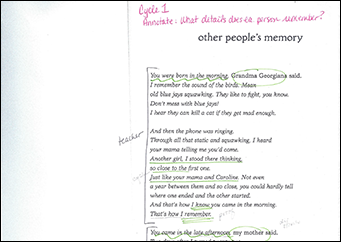 Cycle 1
Annotate: What details does a person remember?
other people's memory
You were born in the morning, Grandma Georgiana said.
I remember the sound of the birds. Mean
old blue jays squawking. They like to fight, you know.
Don't mess with blue jays!
I hear they can kill a cat if they get mad enough.
And then the phone was ringing.
Through all that static and squawking, I heard
teacher
your mama telling me you'd come.
Another girl, I stood there thinking,
so close to the first one.
Just like your mama and Caroline. Not even
a year between them and so close, you could hardly tell
where one ended and the other started.
And that's how I know you came in the morning.
That's how I remember.
You came in the late afternoon, my mother said.